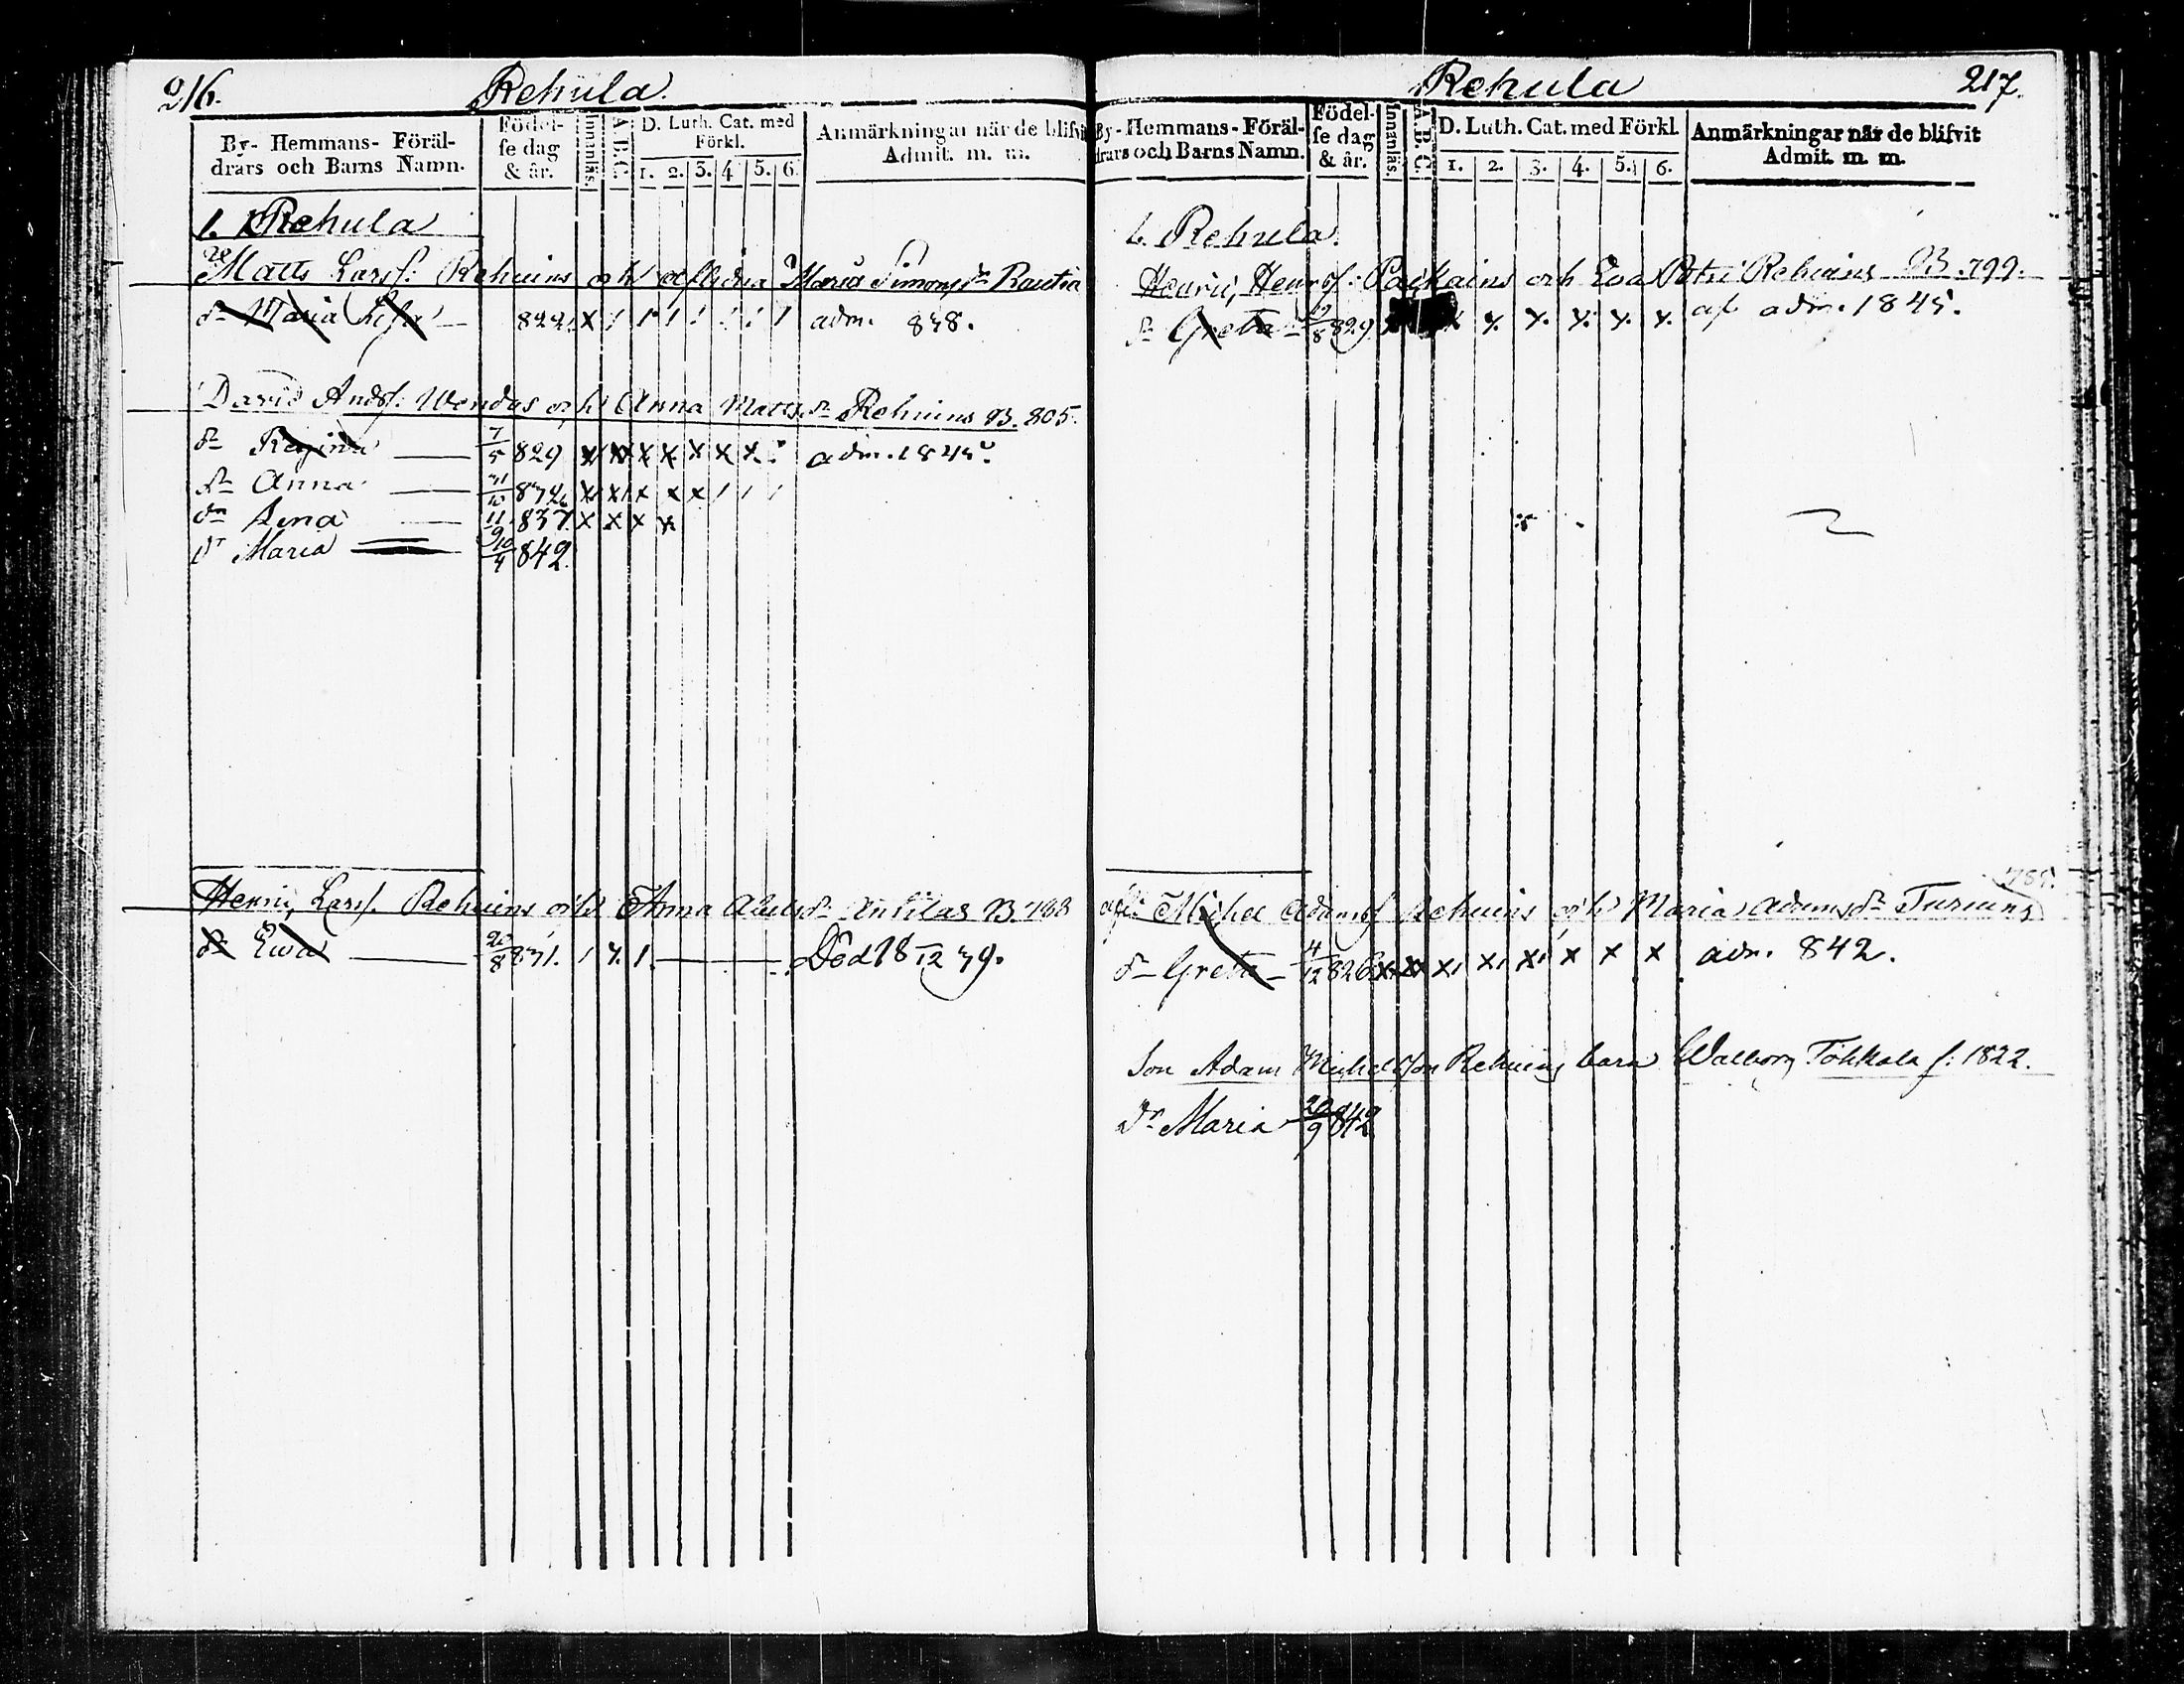 216. Rehula
By- Hemmans- Föräl-
drars och Barns Namn.
Födel-
se dag
& år.
Innanläs.
A.B.C.
D. Luth. Cat. med
Förkl.
1. 2. 3. 4 5. 6
Anmärkningar når de blifvit
Admit. m. m.
1. Rehula
Matts Larsf: Rehuins och aflidna Maria Simonsdr Rautia
dr Maria Lisa — 822. x 1 1 1 1 1 1 1 adm. 838.
David Andsf: Wendus och Anna Mattsdr Rehuins B. 805.
dr Regina — 7/5 829 x x x x x x x adm. 1845.
dr Anna — x x x x x 1 1 1
dr Lena — 11/9 837. x x x x
dr Maria — 10/4 842.
Henric Larsf. Rehuins och Anna
dr Ewa — 20/8 831. 1 x. 1. — Död 18/12 39.
Rehula 217.
By- Hemmans- Föräl-
drars och Barns Namn.
Födel-
se dag
& år.
Innanläs.
A.B.C.
D. Luth. Cat. med Förkl
1. 2. 3. 4. 5. 6.
Anmärkningar når de blifvit
Admit. m. m.
1. Rehula.
Henric Henrsf: Paukains och Eva Petri Rehuins B. 799.
dr Greta 829. x x. x. x. x. x. adm. 1845.
785.
Michel Adamsf Rehuins och Maria Adamsdr Turiains
dr Greta — 4/12 826 x x x x x x x x adm. 842.
Son Adam Michelsson Rehuins barn Walborg Töhkala f: 1822.
dr Maria 20/9 842